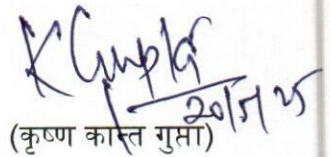 K Gupta
20/5/25
(कृष्ण कान्त गुप्ता)